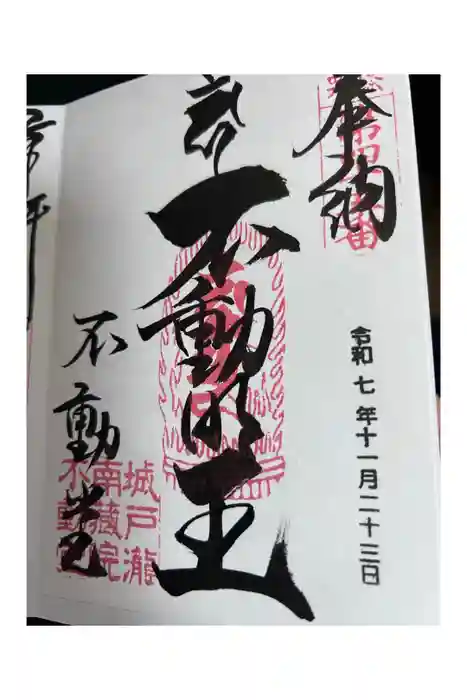 奉納
令和七年十一月二十三日
不動明王
不動堂
城戸瀧
南蔵院
不動